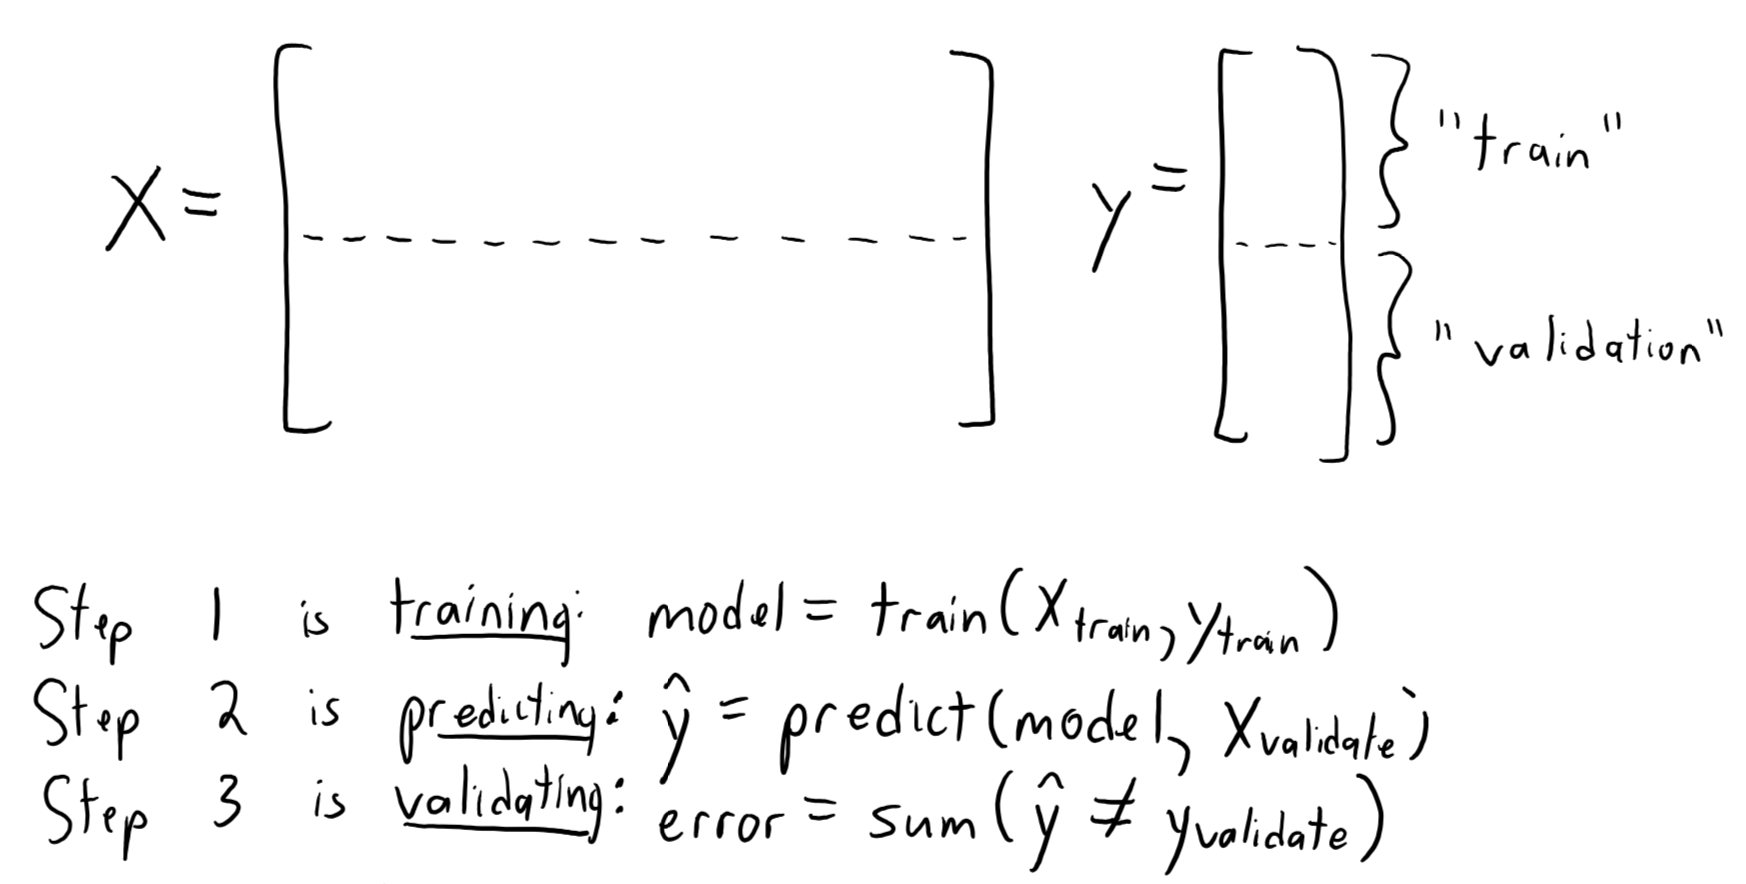 X = y = "train"
"validation"
Step 1 is training: model = train(X_train, y_train)
Step 2 is predicting: ŷ = predict(model, X_validate)
Step 3 is validating: error = sum(ŷ ≠ y_validate)